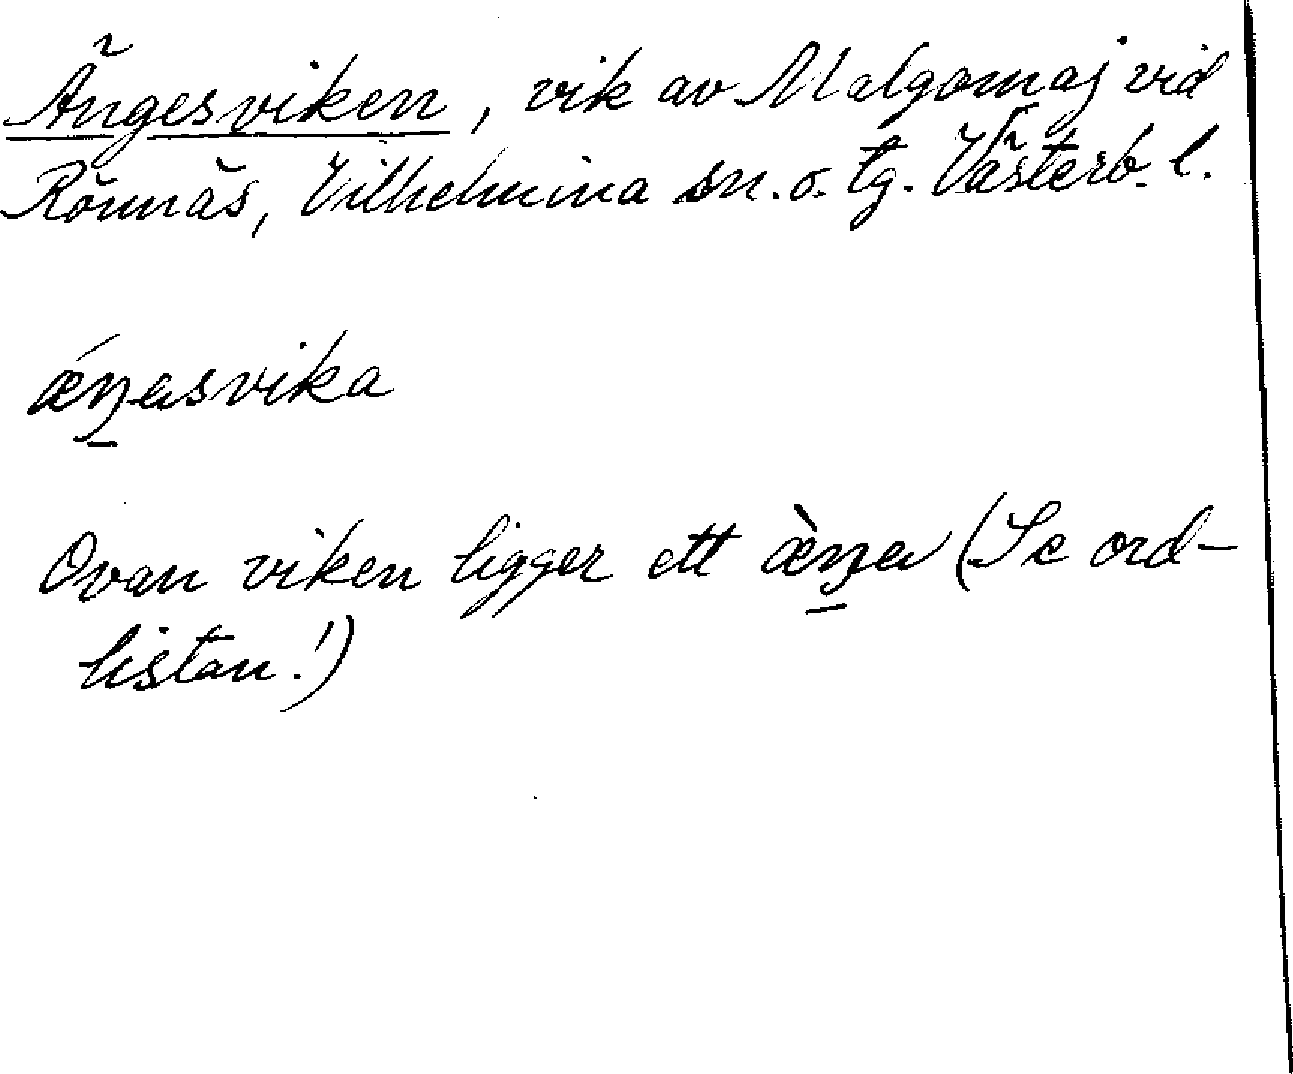 Ängesviken, vik av Malgomaj vid
Rönnäs, Vilhelmina sn. o. tg. Västerb. l.
ǽŋesvika
Ovan viken ligger ett æ̀ŋe (Se ord-
listan!)